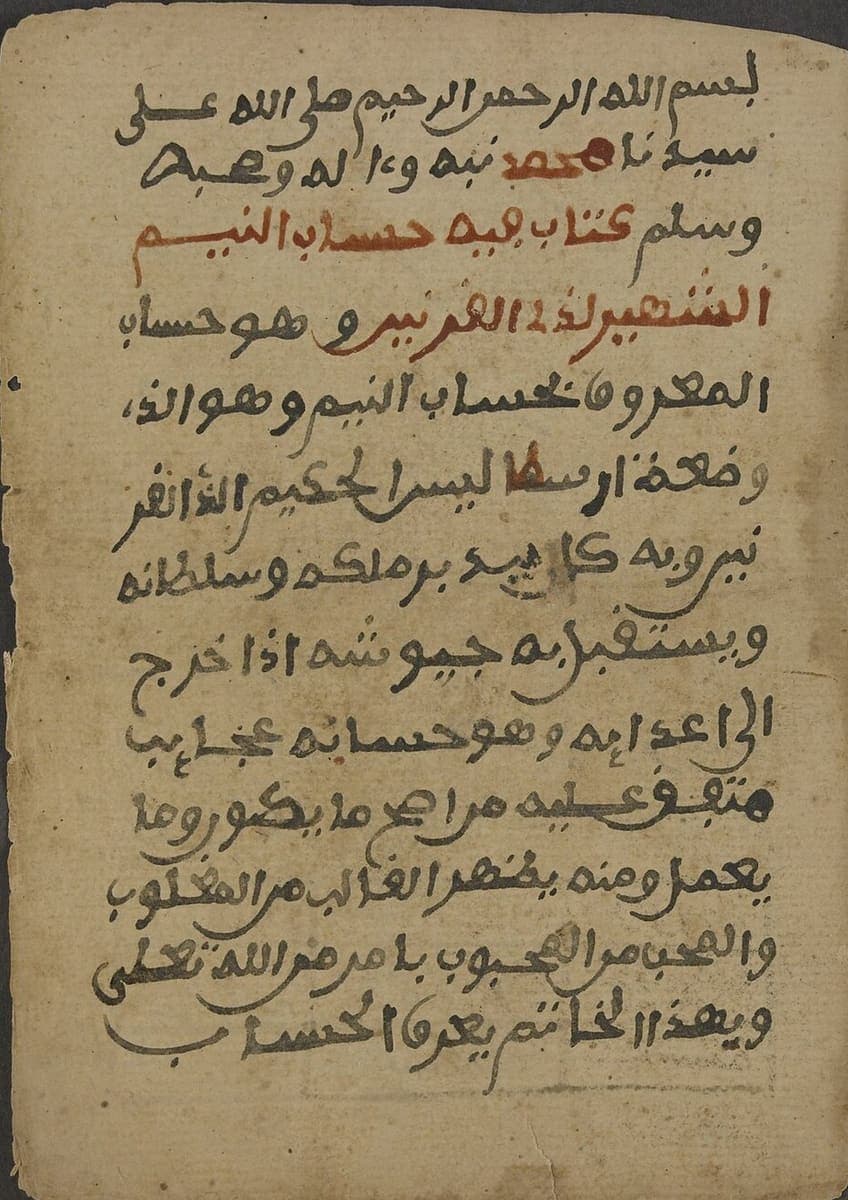 بسم الله الرحمن الرحيم صلى الله على
سيدنا محمد نبيه وءاله وصحبه
وسلم كتاب فيه حساب النيم
الشهير لذي القرنين وهو حساب
المعروف بحساب النيم وهو الذي
وضعه ارسطاليس الحكيم الذ القر
نين وبه كان يدبر ملكه وسلطانه
ويستقبل به جيوشه اذا خرج
الى اعدايه وهو حسانه عجايب
متفق عليه من اصح ما يكون وما
يعمل ومنه يظهر الغالب من المغلوب
والمحب من المحبوب بامر من الله تعلى
وبهذا الخاتم يعرف الحساب